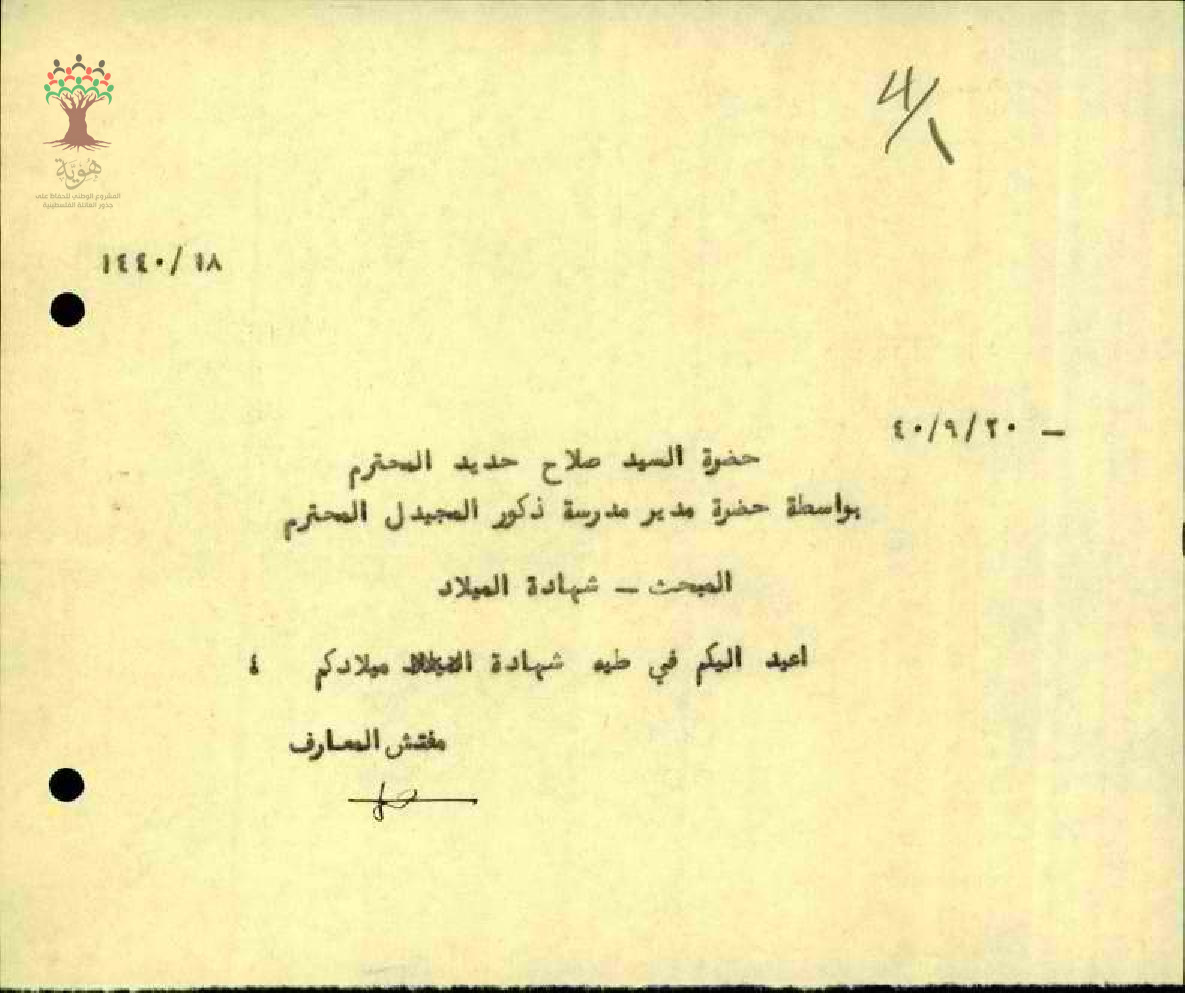 4/1
هُوِيَّة
المشروع الوطني للحفاظ على
جذور العائلة الفلسطينية
١٤٤٠/١٨
٤٠/٩/٢٠ —
حضرة السيد صلاح حديد المحترم
بواسطة حضرة مدير مدرسة ذكور المجيدل المحترم
المبحث — شهادة الميلاد
اعيد اليكم في طيه شهادة ميلادكم ٤
مفتش المعارف